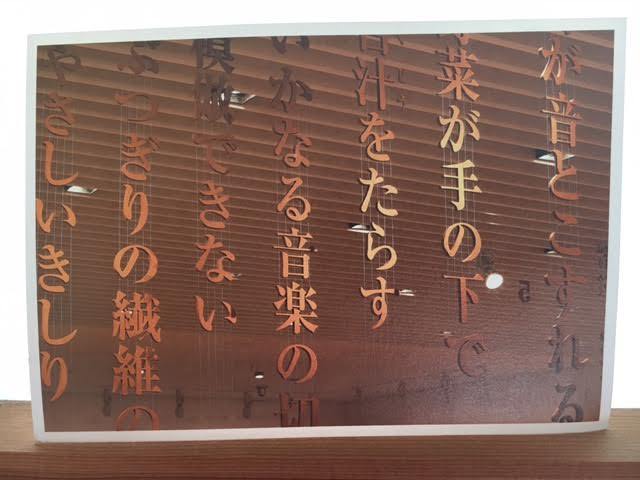 が音とこすれる
菜が手の下で
汁をたらす
いかなる音楽の切
模倣できない
ぶつぎりの繊維の
やさしいきしり